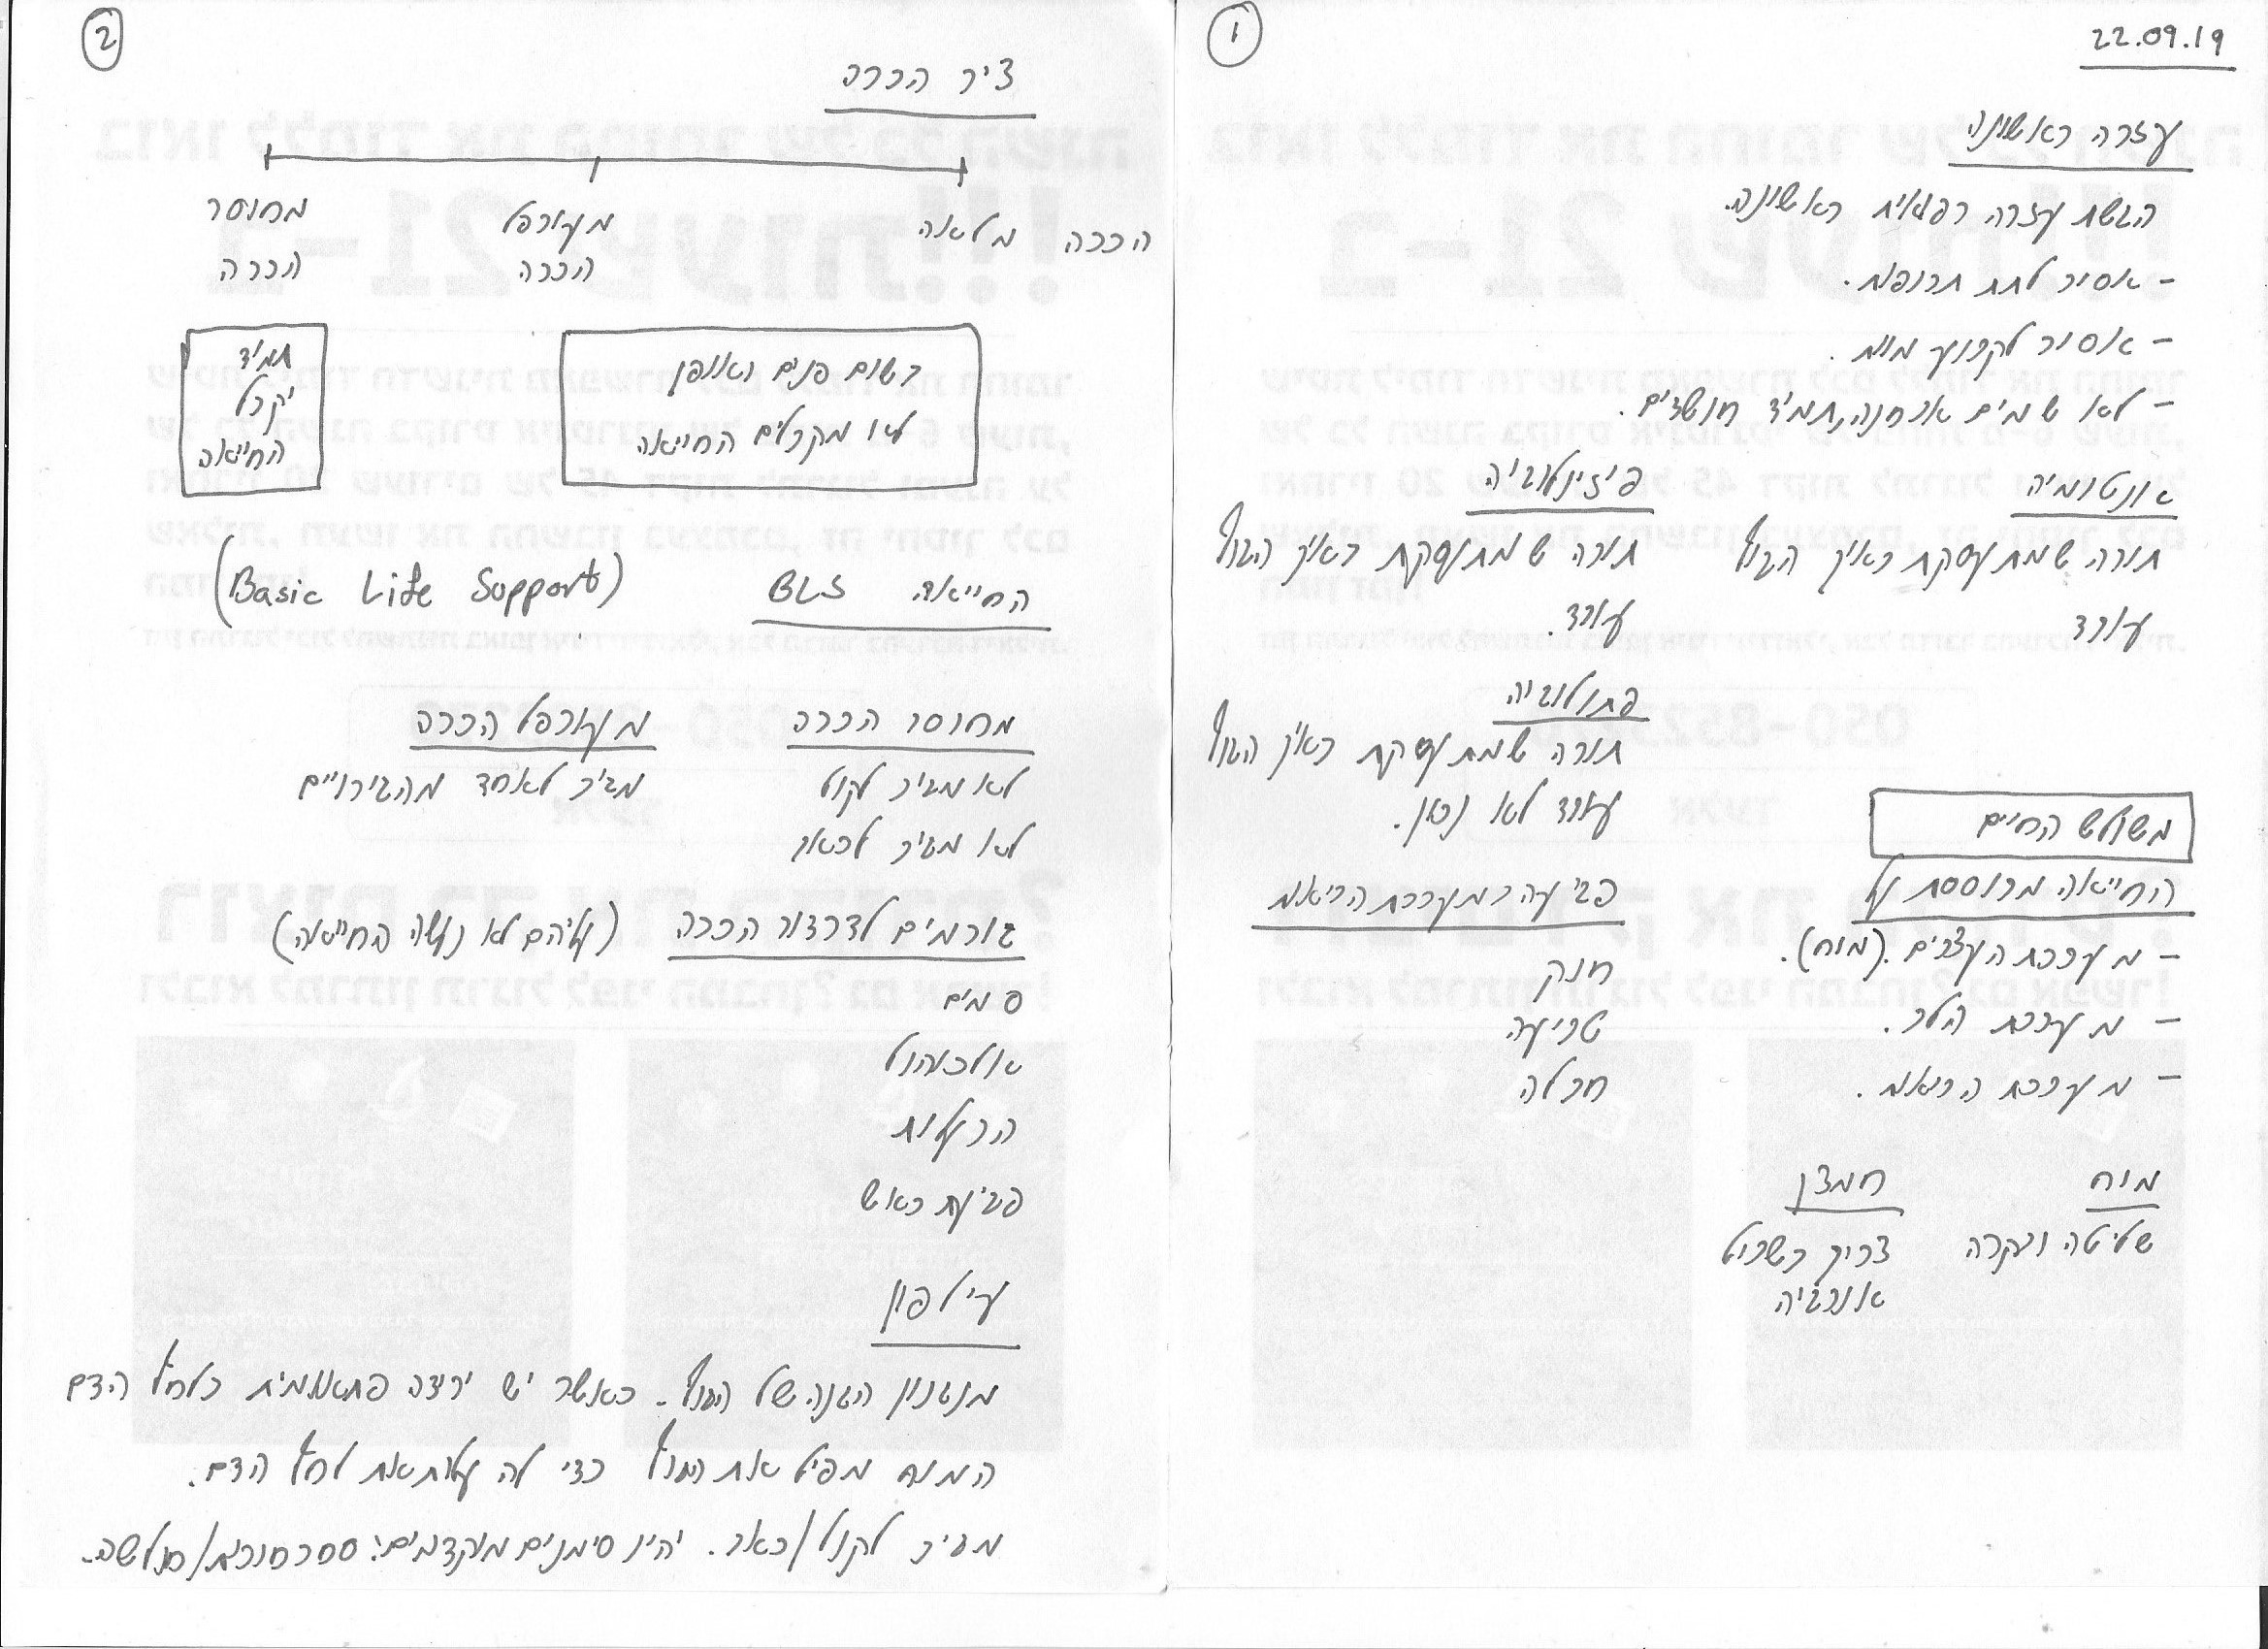 ①
22.09.19
עזרה ראשונה
הגשת עזרה רפואית ראשונה.
- אסור לתת תרופות.
- אסור לקבוע מוות.
- לא שמים אבחנה, תמיד חושדים.
אנטומיה
תורה שמתעסקת באיך הגוף
עובד
פיזיולוגיה
תורה שמתעסקת באיך הגוף
עובד.
פתולוגיה
תורה שמתעסקת באיך הגוף
עובד לא נכון.
משולש החיים
החייאה מבוססת על
- מערכת העצבים. (מוח).
- מערכת הלב.
- מערכת הריאות.
פגיעה במערכת הריאות
חנק
טביעה
מחלה
מוח
שליטה ובקרה
חמצן
צריך בשביל
אנרגיה
②
ציר הכרה
הכרה מלאה
מעורפל
הכרה
מחוסר
הכרה
בשום פנים ואופן
לא מקבלים החייאה
תמיד
יקבל
החייאה
החייאה BLS (Basic Life Support)
מחוסר הכרה
לא מגיב לקול
לא מגיב לכאב
מעורפל הכרה
מגיב לאחד מהגירויים
גורמים לדרדור הכרה (עליהם לא נעשה החייאה)
סמים
אלכוהול
הרעלות
פגיעת ראש
עילפון
מנגנון הגנה של הגוף. כאשר יש ירידה פתאומית בלחץ הדם
המוח מפיל את הגוף כדי להעלות את לחץ הדם.
מגיב לקול/כאב. יהיו סימנים מוקדמים: סחרחורת/חולשה.